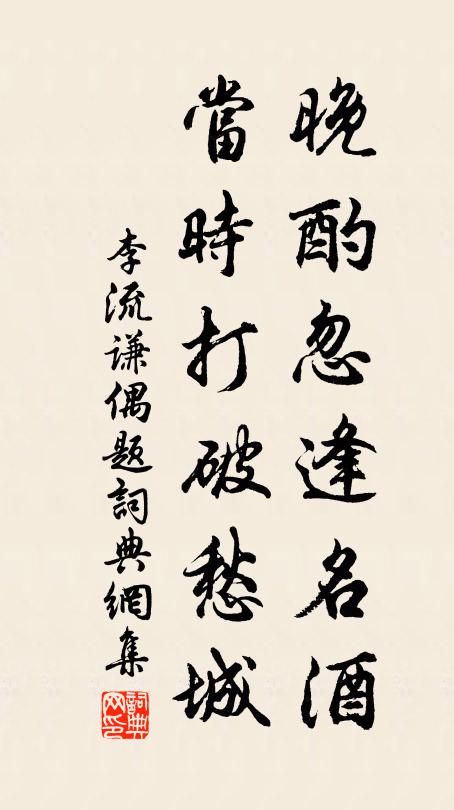 晚酌忽逢名酒
當時打破愁城
李流谦偶题詞典網集
詞典网印